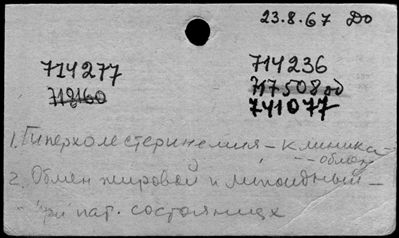 23.8.67 До
714277
714236
712160
717508 од
741077
1. Гиперхолестеринемия – клиника
– обмен
2. Обмен жировой и липоидный –
– при пат. состояниях